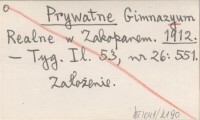 Prywatne Gimnazyum
Realne w Zakopanem. 1912.
— Tyg. Il. 53, nr 26: 551.
Założenie.